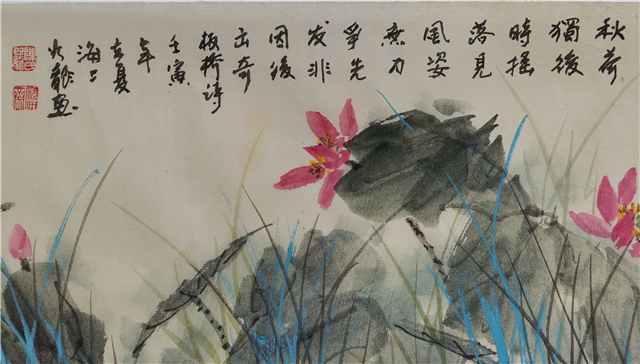 秋荷
獨後
時搖
落見
風姿
無力
爭先
发非
因後
出奇
板桥诗
壬寅
年
夏
海上
龍画